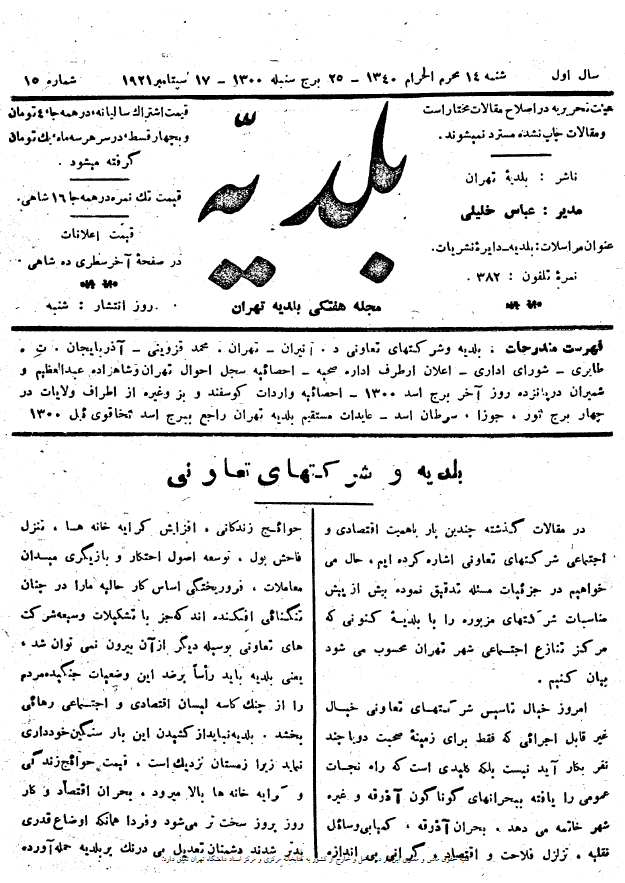 سال اول شنبه ۱۴ محرم الحرام ۱۳۴۰ - ۲۵ برج سنبله ۱۳۰۰ - ۱۷ سپتامبر ۱۹۲۱ شماره ۱۵
هیئت تحریریه در اصلاح مقالات مختار است
و مقالات چاپ نشده مسترد نمیشوند.
ناشر : بلدیهٔ تهران
مدیر : عباس خلیلی
عنوان مراسلات: بلدیه-دایرهٔ نشریات.
نمرهٔ تلفون : ۳۸۲ .
بلدیّه
مجله هفتگی بلدیه تهران
قیمت اشتراك سالیانه، در همه جا ۴ تومان
و بچهار قسط، در سر هر سه ماه، یك تومان
گرفته میشود .
قیمت تك نمره در همه جا ۱۶ شاهی.
قیمت اعلانات
در صفحهٔ آخر سطری ده شاهی .
روز انتشار : شنبه
فهرست مندرجات . بلدیه و شرکتهای تعاونی د . آنیران - تهران . محمد قزوینی - آذربایجان . ت . ه
طایری - شورای اداری - اعلان از طرف اداره صحیه - احصائیه سجل احوال تهران و شاهزاده عبدالعظیم و
شمیران در پانزده روز آخر برج اسد ۱۳۰۰ - احصائیه واردات گوسفند و بز وغیره از اطراف ولایات در
چهار برج ثور ، جوزا ، سرطان اسد - عایدات مستقیم بلدیه تهران راجع ببرج اسد تخاقوی ئیل ۱۳۰۰
بلدیه و شرکتهای تعاونی
در مقالات گذشته چندین بار باهمیت اقتصادی و
اجتماعی شرکتهای تعاونی اشاره کرده ایم، حال می
خواهیم در جزئیات مسئله تدقیق نموده بیش از پیش
مناسبات شرکتهای مزبوره را با بلدیهٔ کنونی که
مرکز تنازع اجتماعی شهر تهران محسوب می شود
بیان کنیم .
امروز خیال تاسیس شرکتهای تعاونی خیال
غیر قابل اجرائی که فقط برای زمینهٔ صحبت دو یا چند
نفر بکار آید نیست بلکه کلیدی است که راه نجات
عمومی را یافته ببحرانهای گوناگون آذرقه و غیره
شهر خاتمه می دهد . بحران آذرقه ، کمیابی وسائل
نقلیه ، تزلزل فلاحت و اقتصاد و گرانی بی اندازه
حوائج زندگانی ، افزایش کرایه خانه ها ، تنزل
فاحش پول ، توسعه اصول احتکار و بازیگری میدان
معاملات ، فروریختگی اساس کار حالیه مارا در چنان
تنگنائی افکنده اند که جز با تشکیلات وسیعه شرکت
های تعاونی بوسیله دیگر از آن بیرون نمی توان شد ،
یعنی بلدیه باید رأساً بر ضد این وضعیات جنگیده مردم
را از چنك کاسه لیسان اقتصادی و اجتماعی رهائی
بخشد . بلدیه نباید از کشیدن این بار سنگین خودداری
نماید زیرا زمستان نزدیك است ، قیمت حوائج زندگی
و کرایه خانه ها بالا میرود . بحران اقتصاد و کار
روز بروز سخت تر می شود و فردا همانکه اوضاع قدری
بدتر شدند دشمنان تعدیل بی درنك بر بلدیه حمله آورده